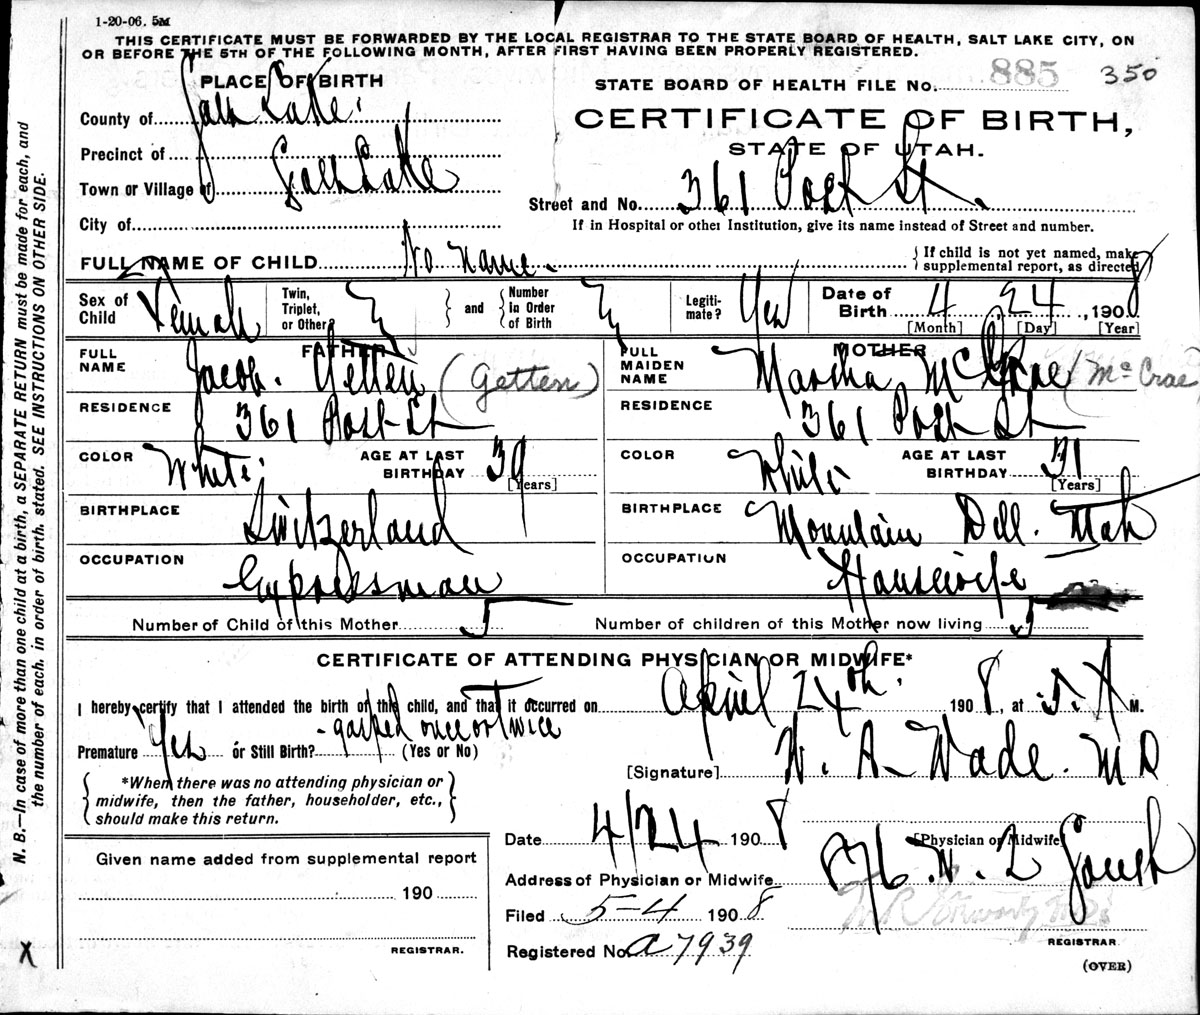 1-20-06. 5M
THIS CERTIFICATE MUST BE FORWARDED BY THE LOCAL REGISTRAR TO THE STATE BOARD OF HEALTH, SALT LAKE CITY, ON
OR BEFORE THE 5TH OF THE FOLLOWING MONTH, AFTER FIRST HAVING BEEN PROPERLY REGISTERED.
PLACE OF BIRTH
STATE BOARD OF HEALTH FILE No. 885 350
County of Salt Lake
CERTIFICATE OF BIRTH,
STATE OF UTAH.
Precinct of
Town or Village of Salt Lake
Street and No. 361 Post St.
If in Hospital or other Institution, give its name instead of Street and number.
City of
FULL NAME OF CHILD No name. { If child is not yet named, make
supplemental report, as directed
Sex of Child Female Twin, Triplet, or Other? } and { Number In Order of Birth Legiti- mate? Yes Date of Birth 4 24, 1908
[Month] [Day] [Year]
FATHER
MOTHER
FULL NAME Jacob. Getten (Getten)
FULL MAIDEN NAME Martha McCrae (McCrae)
RESIDENCE 361 Post St
RESIDENCE 361 Post St
COLOR White AGE AT LAST BIRTHDAY 39 [Years]
COLOR White AGE AT LAST BIRTHDAY 31 [Years]
BIRTHPLACE Switzerland
BIRTHPLACE Mountain Dell. Utah
OCCUPATION Expressman
OCCUPATION Housewife
Number of Child of this Mother 5 Number of children of this Mother now living 5
CERTIFICATE OF ATTENDING PHYSICIAN OR MIDWIFE*
I hereby certify that I attended the birth of this child, and that it occurred on April 24th. 1908, at 5. A M.
Premature Yes or Still Birth? - gasped once or twice (Yes or No)
[Signature] W. A. Wade. MD
{ *When there was no attending physician or
midwife, then the father, householder, etc.,
should make this return. }
[Physician or Midwife]
Date 4/24 1908
Given name added from supplemental report
190
REGISTRAR.
Address of Physician or Midwife 876. W. 2 South
Filed 5-4 1908
REGISTRAR
Registered No. a7939
(OVER)
N. B.—In case of more than one child at a birth, a SEPARATE RETURN must be made for each, and
the number of each, in order of birth, stated. SEE INSTRUCTIONS ON OTHER SIDE.
X